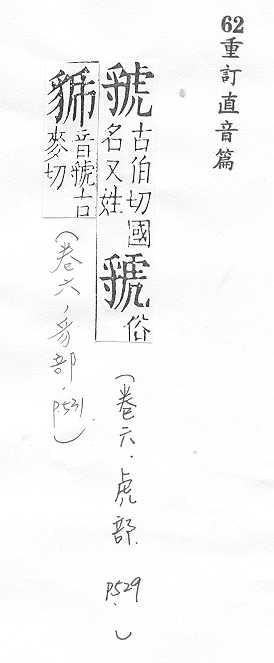 62重訂直音篇
虢 古伯切國名又姓 俗
音虢古麥切
(卷六.虎部. P.529.)
(卷六.豸部. P.531)